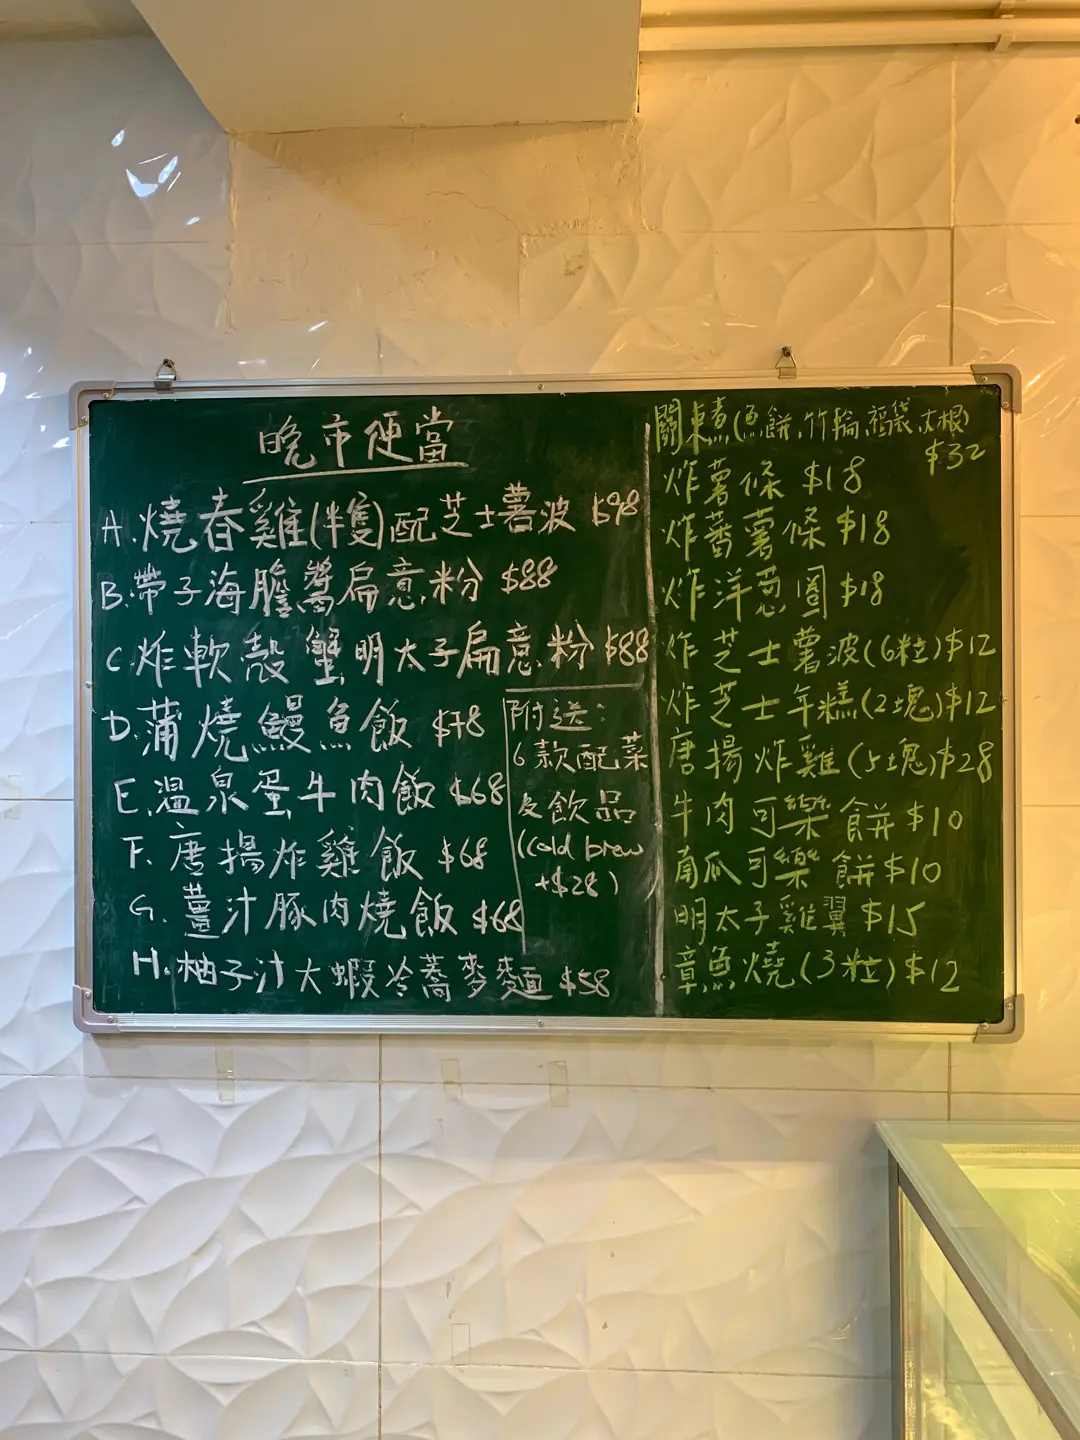 晚市便當
A.燒春雞(半隻)配芝士薯波 $98
B.帶子海膽醬扁意粉 $88
C.炸軟殼蟹明太子扁意粉 $88
D.蒲燒鰻魚飯 $78
E.溫泉蛋牛肉飯 $68
F.唐揚炸雞飯 $68
G.薑汁豚肉燒飯 $68
H.柚子汁大蝦冷蕎麥麵 $58
附送:
6款配菜
及飲品
(cold brew
+$28)
關東煮(魚餅,竹輪,福袋,大根)
$32
炸薯條 $18
炸蕃薯條 $18
炸洋蔥圈 $18
炸芝士薯波(6粒)$12
炸芝士年糕(2塊)$12
唐揚炸雞(5塊)$28
牛肉可樂餅 $10
南瓜可樂餅 $10
明太子雞翼 $15
章魚燒(3粒)$12